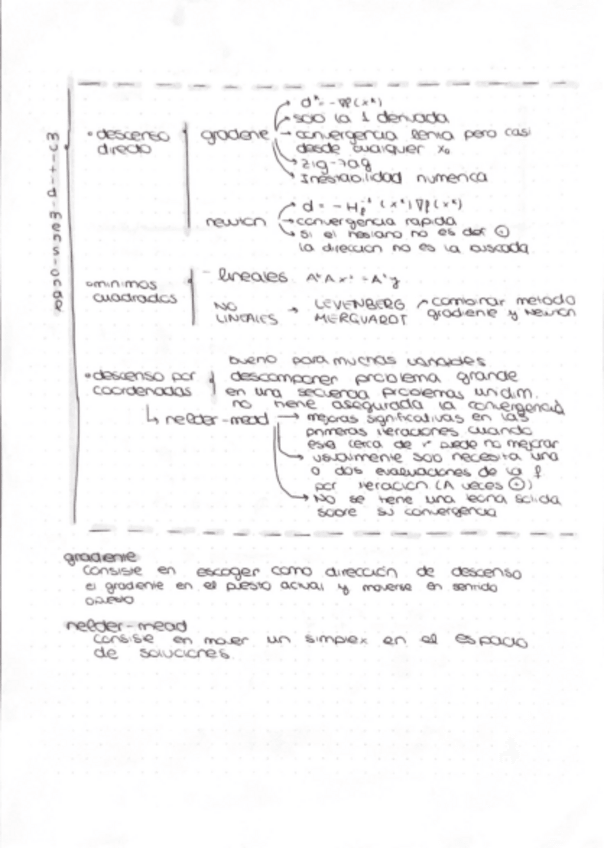 • descenso directo
gradiente
d^k = -∇f(x^k)
solo la 1 derivada
convergencia lenta pero casi
desde cualquier x₀
zig-zag
Inestabilidad numerica
newton
d = -H_f^-1 (x^k) ∇f(x^k)
convergencia rapida
si el hesiano no es def ⊕
la direccion no es la buscada
minimos cuadrados
- lineales A^tAx = A^ty
NO LINEALES → LEVENBERG MERQUARDT
combinar metodo
gradiente y Newton
• descenso por coordenadas
bueno para muchas variables
descomponer problema grande
en una secuencia problemas unidim.
no tiene asegurada la convergencia
↳ nelder-mead
→ mejoras significativas en las
primeras iteraciones cuando
este cerca de puede no mejorar
→ usualmente solo necesita una
o dos evaluaciones de la f
por iteración (A veces ⊕)
→ NO se tiene una teoria solida
sobre su convergencia
gradiente
Consiste en escoger como dirección de descenso
el gradiente en el puesto actual y moverse en sentido
opuesto
nelder-mead
consise en mover un simplex en el espacio
de soluciones.